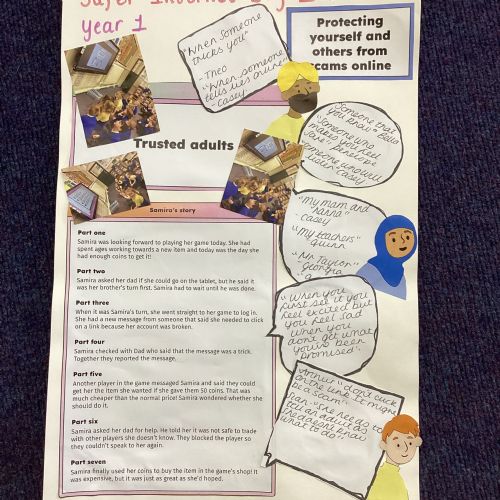 Safer Internet Day
year 1
Protecting
yourself and
others from
scams online
"When someone
tricks you"
- Theo
"When someone
tells lies online"
- Casey
Trusted adults
Someone that
you know" Bella
"Someone who
makes you feel
safe", Penelope
"Someone who will
listen" Casey
"My mam and
nanna"
- Casey
"My teachers"
quinn
"Mr Taylor"
georgia
Samira's story
Part one
Samira was looking forward to playing her game today. She had
spent ages working towards a new item and today was the day she
had enough coins to get it!
Part two
Samira asked her dad if she could go on the tablet, but he said it
was her brother's turn first. Samira had to wait until he was done.
Part three
When it was Samira's turn, she went straight to her game to log in.
She had a new message from someone that said she needed to click
on a link because her account was broken.
Part four
Samira checked with Dad who said that the message was a trick.
Together they reported the message.
Part five
Another player in the game messaged Samira and said they could
get her the item she wanted if she gave them 50 coins. That was
much cheaper than the normal price! Samira wondered whether she
should do it.
Part six
Samira asked her dad for help. He told her it was not safe to trade
with other players she doesn't know. They blocked the player so
they couldn't speak to her again.
Part seven
Samira finally used her coins to buy the item in the game's shop! It
was expensive, but it was just as great as she'd hoped.
"When you
first see it you
feel excited but
you feel sad
when you
dont get what
you've been
promised".
Arthur "dont click
on the link it might
be a scam"
"We need to
tell an adult
what to do",